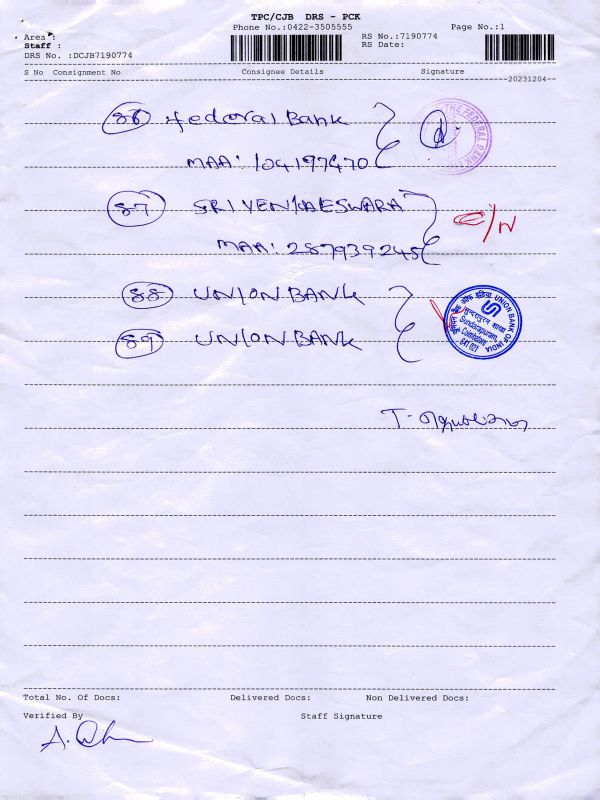 TPC/CJB DRS - PCK
Phone No.:0422-3505555 Page No.:1
Area : RS No.:7190774
Staff : RS Date:
DRS No. :DCJB7190774
S No Consignment No Consignee Details Signature
20231204
86 Federal Bank
MAA: 104197470
THE FEDERAL BANK
87 SRI VENKATESWARA
C/N
MAA: 287939245
88 UNION BANK
89 UNION BANK
UNION BANK OF INDIA
Sundarapuram,
Coimbatore
641 021
Total No. Of Docs: Delivered Docs: Non Delivered Docs:
Verified By Staff Signature